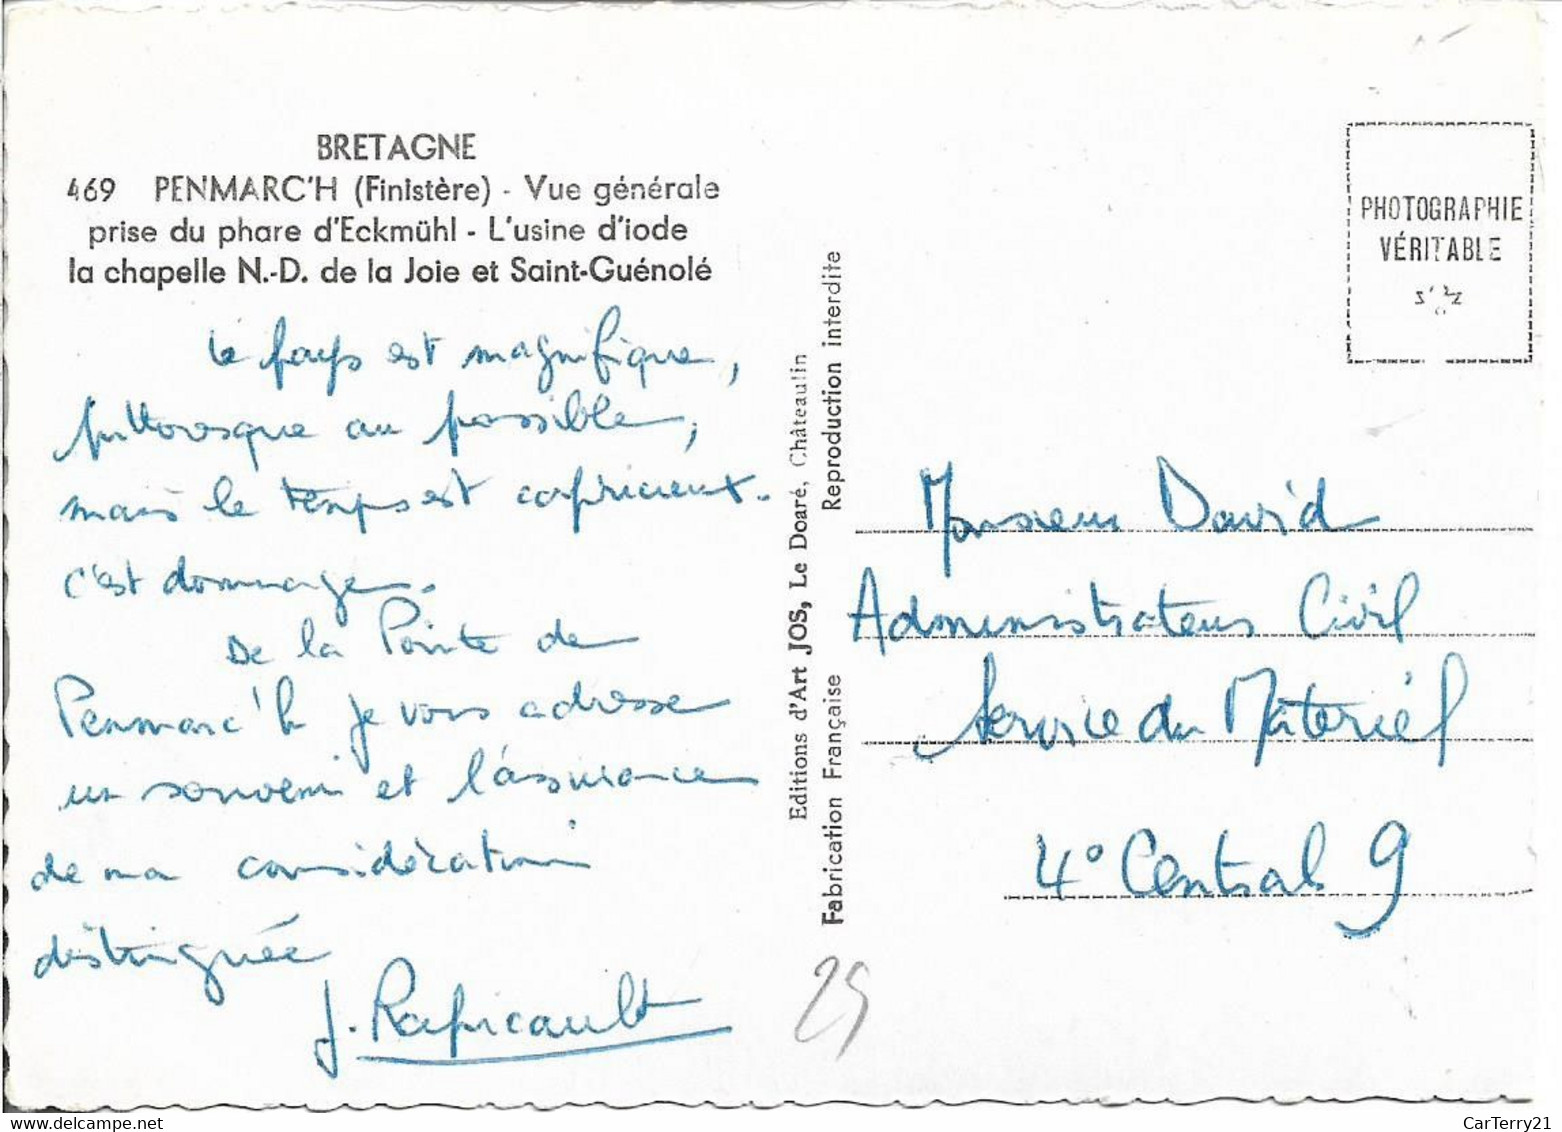 BRETAGNE
469 PENMARC'H (Finistère) - Vue générale
prise du phare d'Eckmühl - L'usine d'iode
la chapelle N.-D. de la Joie et Saint-Guénolé
Le pays est magnifique,
pittoresque au possible,
mais le temps est capricieux.
c'est dommage.
De la Pointe de
Penmarc'h je vous adresse
un souvenir et l'assurance
de ma considération
distinguée
J. Rapicault
Editions d'Art JOS, Le Doaré, Châteaulin
Fabrication Française
Reproduction interdite
PHOTOGRAPHIE
VÉRITABLE
Monsieur David
Administrateur Civil
Service du Matériel
4° Central 9
29
www.delcampe.net
CarTerry21